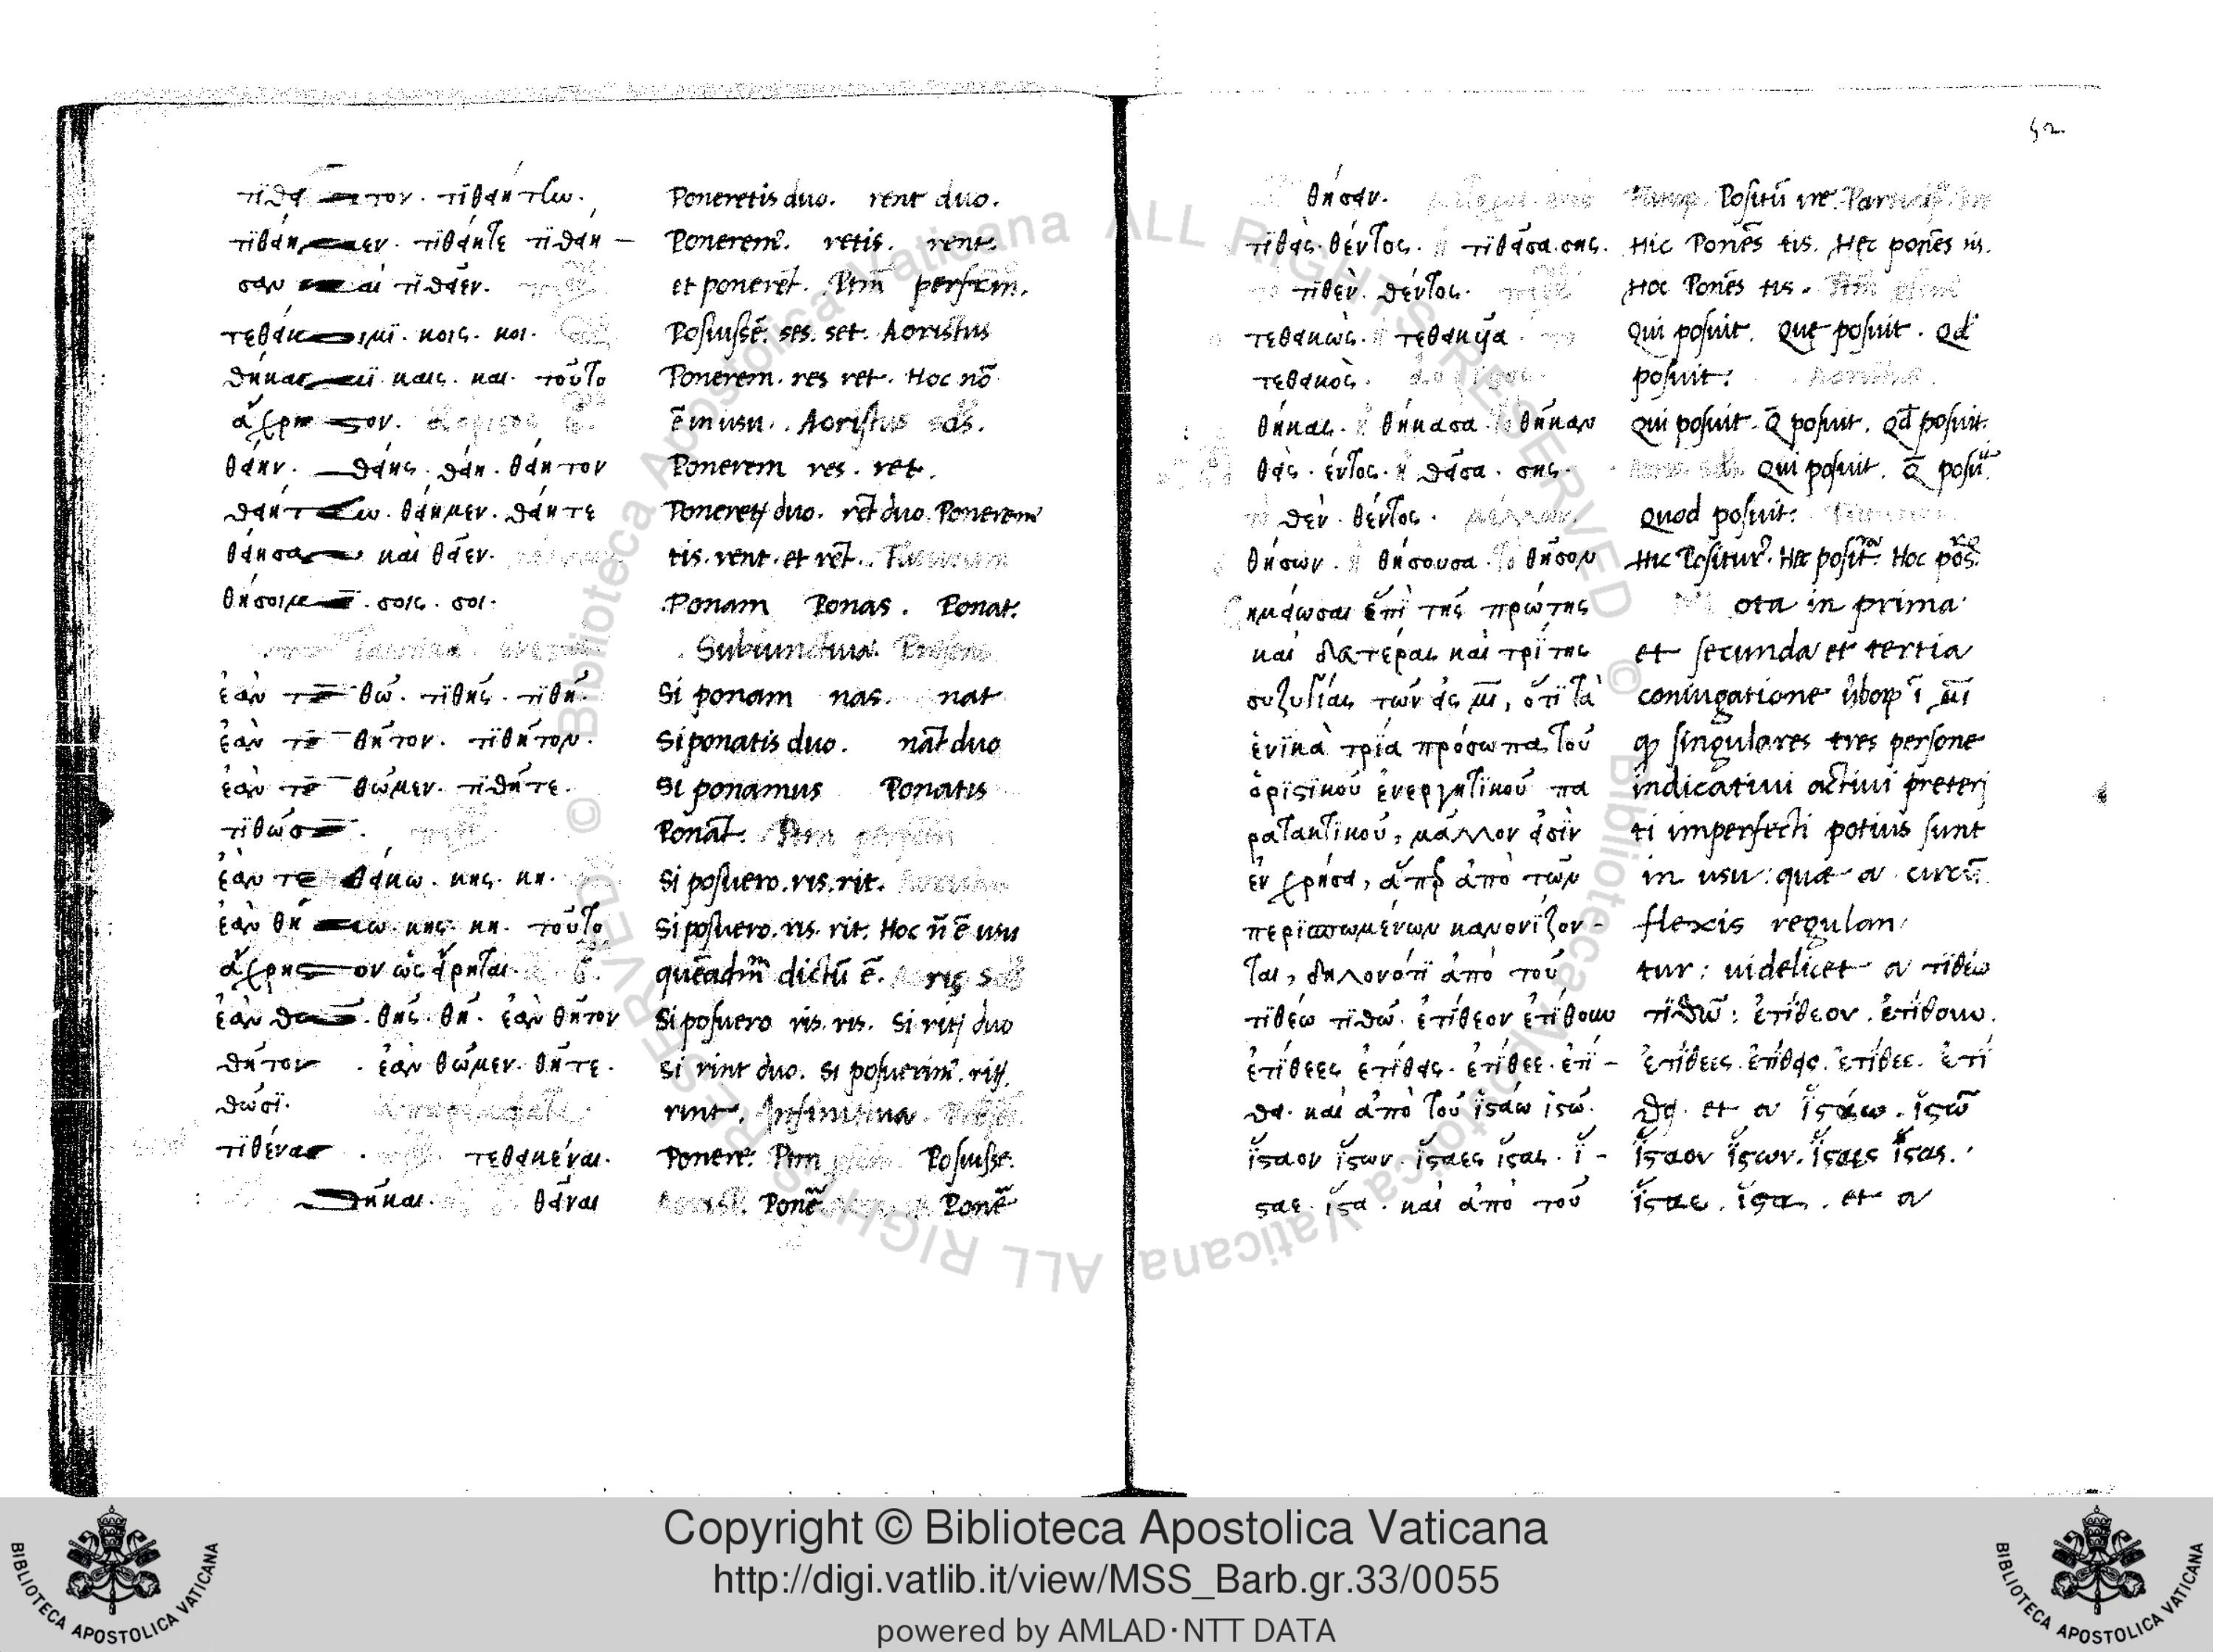 τιθείητον. τιθειήτην.
τιθείημεν. τιθείητε τιθείη-
σαν καὶ τιθεῖεν.
τεθείκοιμι. κοις. κοι.
θήκαιμι. καις. και. τοῦτο
ἄχρηστον. ἀόριστος β.
θείην. θείης. θείη. θείητον
θειήτην. θείημεν. θείητε
θείησαν καὶ θεῖεν.
θήσοιμι. σοις. σοι.
ἐὰν τιθῶ. τιθῆς. τιθῆ.
ἐὰν τιθῆτον. τιθῆτον.
ἐὰν τιθῶμεν. τιθῆτε.
τιθῶσι.
ἐὰν τεθείκω. κης. κη.
ἐὰν θήκω. κης. κη. τοῦτο
ἄχρηστον ὡς εἴρηται. β.
ἐὰν θῶ. θῆς. θῆ. ἐὰν θῆτον
θῆτον. ἐὰν θῶμεν. θῆτε.
θῶσι.
τιθέναι. τεθεικέναι.
θῆκαι. θεῖναι
Poneretis duo. rent duo.
Poneremꝰ. retis. rent.
et ponerēt. Ptm̄ perfcm̄.
Posuissē. ses. set. Aoristus
Ponerem. res ret. Hoc nō
ē in usu. Aoristus scds.
Ponerem res. ret.
Poneretis duo. rēt duo. Poneremꝰ
tis. rent. et rēt. Futurum
Ponam Ponas. Ponat.
Subiunctiua. Presens
Si ponam nas. nat
Si ponatis duo. nāt duo
Si ponamus Ponatis
Ponāt. Ptm perfcm
Si posuero. ris. rit.
Si posuero. ris. rit. Hoc n̄ ē usu
quēadm̄ dictū ē. Aoris scds
Si posuero ris. ris. Si ritis duo
Si rint duo. Si posuerimꝰ. ritis.
rint. Infinitiua. Presēs.
Ponere. Ptm Posuisse.
Ponē Ponē
52
θήσειν.
τιθεὶς. θέντος. ἡ τιθεῖσα. σης.
τὸ τιθὲν. θέντος.
τεθεικὼς. ἡ τεθεικυῖα. τὸ
τεθεικὸς.
θήκας. ἡ θήκασα. τὸ θῆκαν
θεὶς. έντος. ἡ θεῖσα. σης.
τὸ θὲν. θέντος. μέλλων.
θήσων. ἡ θήσουσα. τὸ θῆσον
ημείωσαι ἐπὶ τῆς πρώτης
καὶ δευτέρας καὶ τρίτης
συζυγίας τῶν εἰς μι, ὅτι τὰ
ἑνικὰ τρία πρόσωπα τοῦ
ὁριστικοῦ ἐνεργητικοῦ πα
ρατατικοῦ, μᾶλλον εἰσὶν
ἐν χρήσει, ἅπερ ἀπὸ τῶν
περισπωμένων κανονίζον-
ται, δηλονότι ἀπὸ τοῦ
τιθέω τιθῶ. ἐτίθεον ἐτίθουν
ἐτίθεες ἐτίθεις. ἐτίθεε. ἐτί-
θει. καὶ ἀπὸ τοῦ ἱστάω ἱστῶ.
ἵσταον ἵστων. ἵσταες ἵστας. ἵ-
σταε. ἵστα. καὶ ἀπὸ τοῦ
Positū ire. Particip
Hic Ponēs tis. Hec ponēs tis.
Hoc Ponēs tis.
Qui posuit. Que posuit. Qd
posuit:
Qui posuit. Q̄ posuit. Qd posuit.
Qui posuit. Q̄ posuit
Quod posuit:
Hic Positurꝰ. Hec positura. Hoc pos.
ota in prima
et secunda et tertia
coniugatione ūborꝝ ī μι
ꝙ singulares tres persone
indicatiui actiui preteri
ti imperfecti potius sunt
in usu: que a circū
flexis regulan
tur: uidelicet a τιθέω
τιθῶ: ἐτίθεον. ἐτίθουν.
ἐτίθεες. ἐτίθεις. ἐτίθεε. ἐτί
θει. et a ἱστάω. ἱστῶ
ἵσταον ἵστων. ἵσταες ἵστας.
ἵσταε. ἵστα. et a
Copyright © Biblioteca Apostolica Vaticana
http://digi.vatlib.it/view/MSS_Barb.gr.33/0055
powered by AMLAD·NTT DATA
BIBLIOTECA APOSTOLICA VATICANA
BIBLIOTECA APOSTOLICA VATICANA
© Biblioteca Apostolica Vaticana ALL RIGHTS RESERVED © Biblioteca Apostolica Vaticana ALL RIGHTS RESERVED